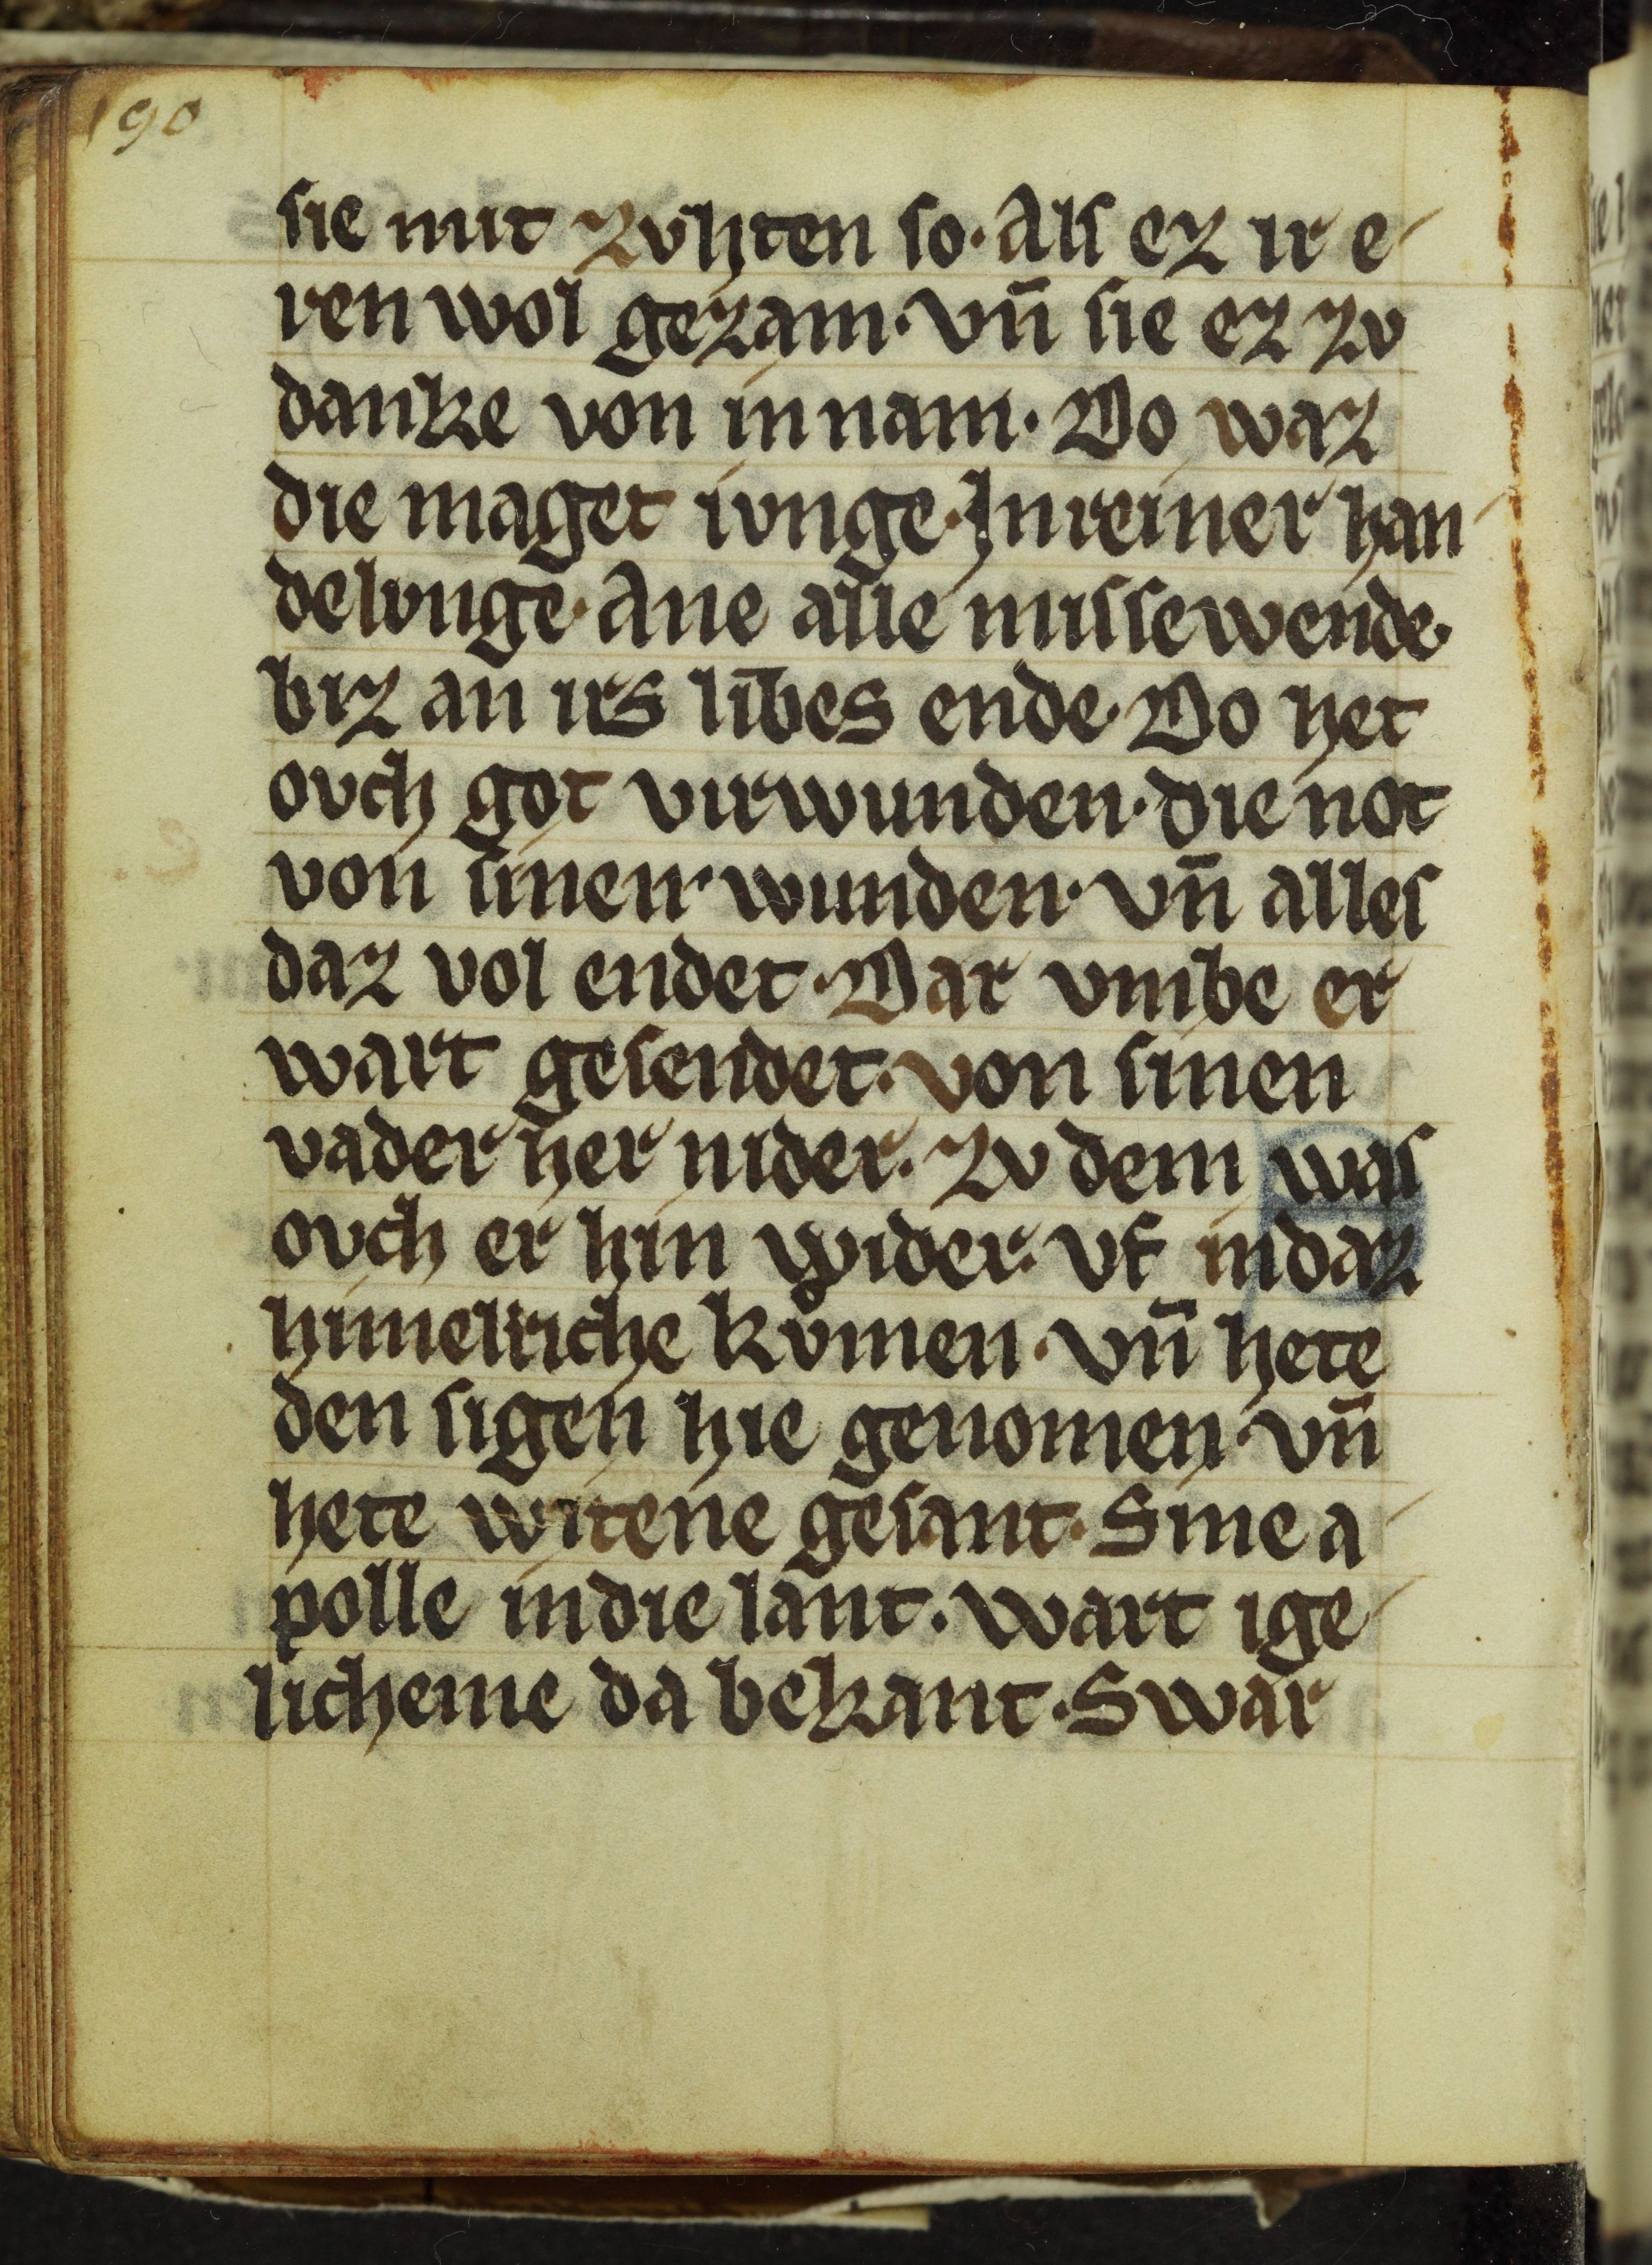 90
sie mit zvhten so · Als ez ir e-
ren wol gezam · vn̄ sie ez zv
danke von in nam · Do waz
die maget ivnge · In reiner han-
delvnge · Ane alle missewende ·
biz an irs libes ende · Do het
ovch got virwunden · die not
von sinen wunden · vn̄ alles
daz vol endet · Dar vmbe er
wart gesendet · von sinen
vader her nider · zv dem was
ovch er hin wider · vf in daz
himelriche kvmen · vn̄ hete
den sigen hie genomen · vn̄
hete witene gesant · Sine a-
polle in die lant · wart ige-
licheme da bekant · Swar